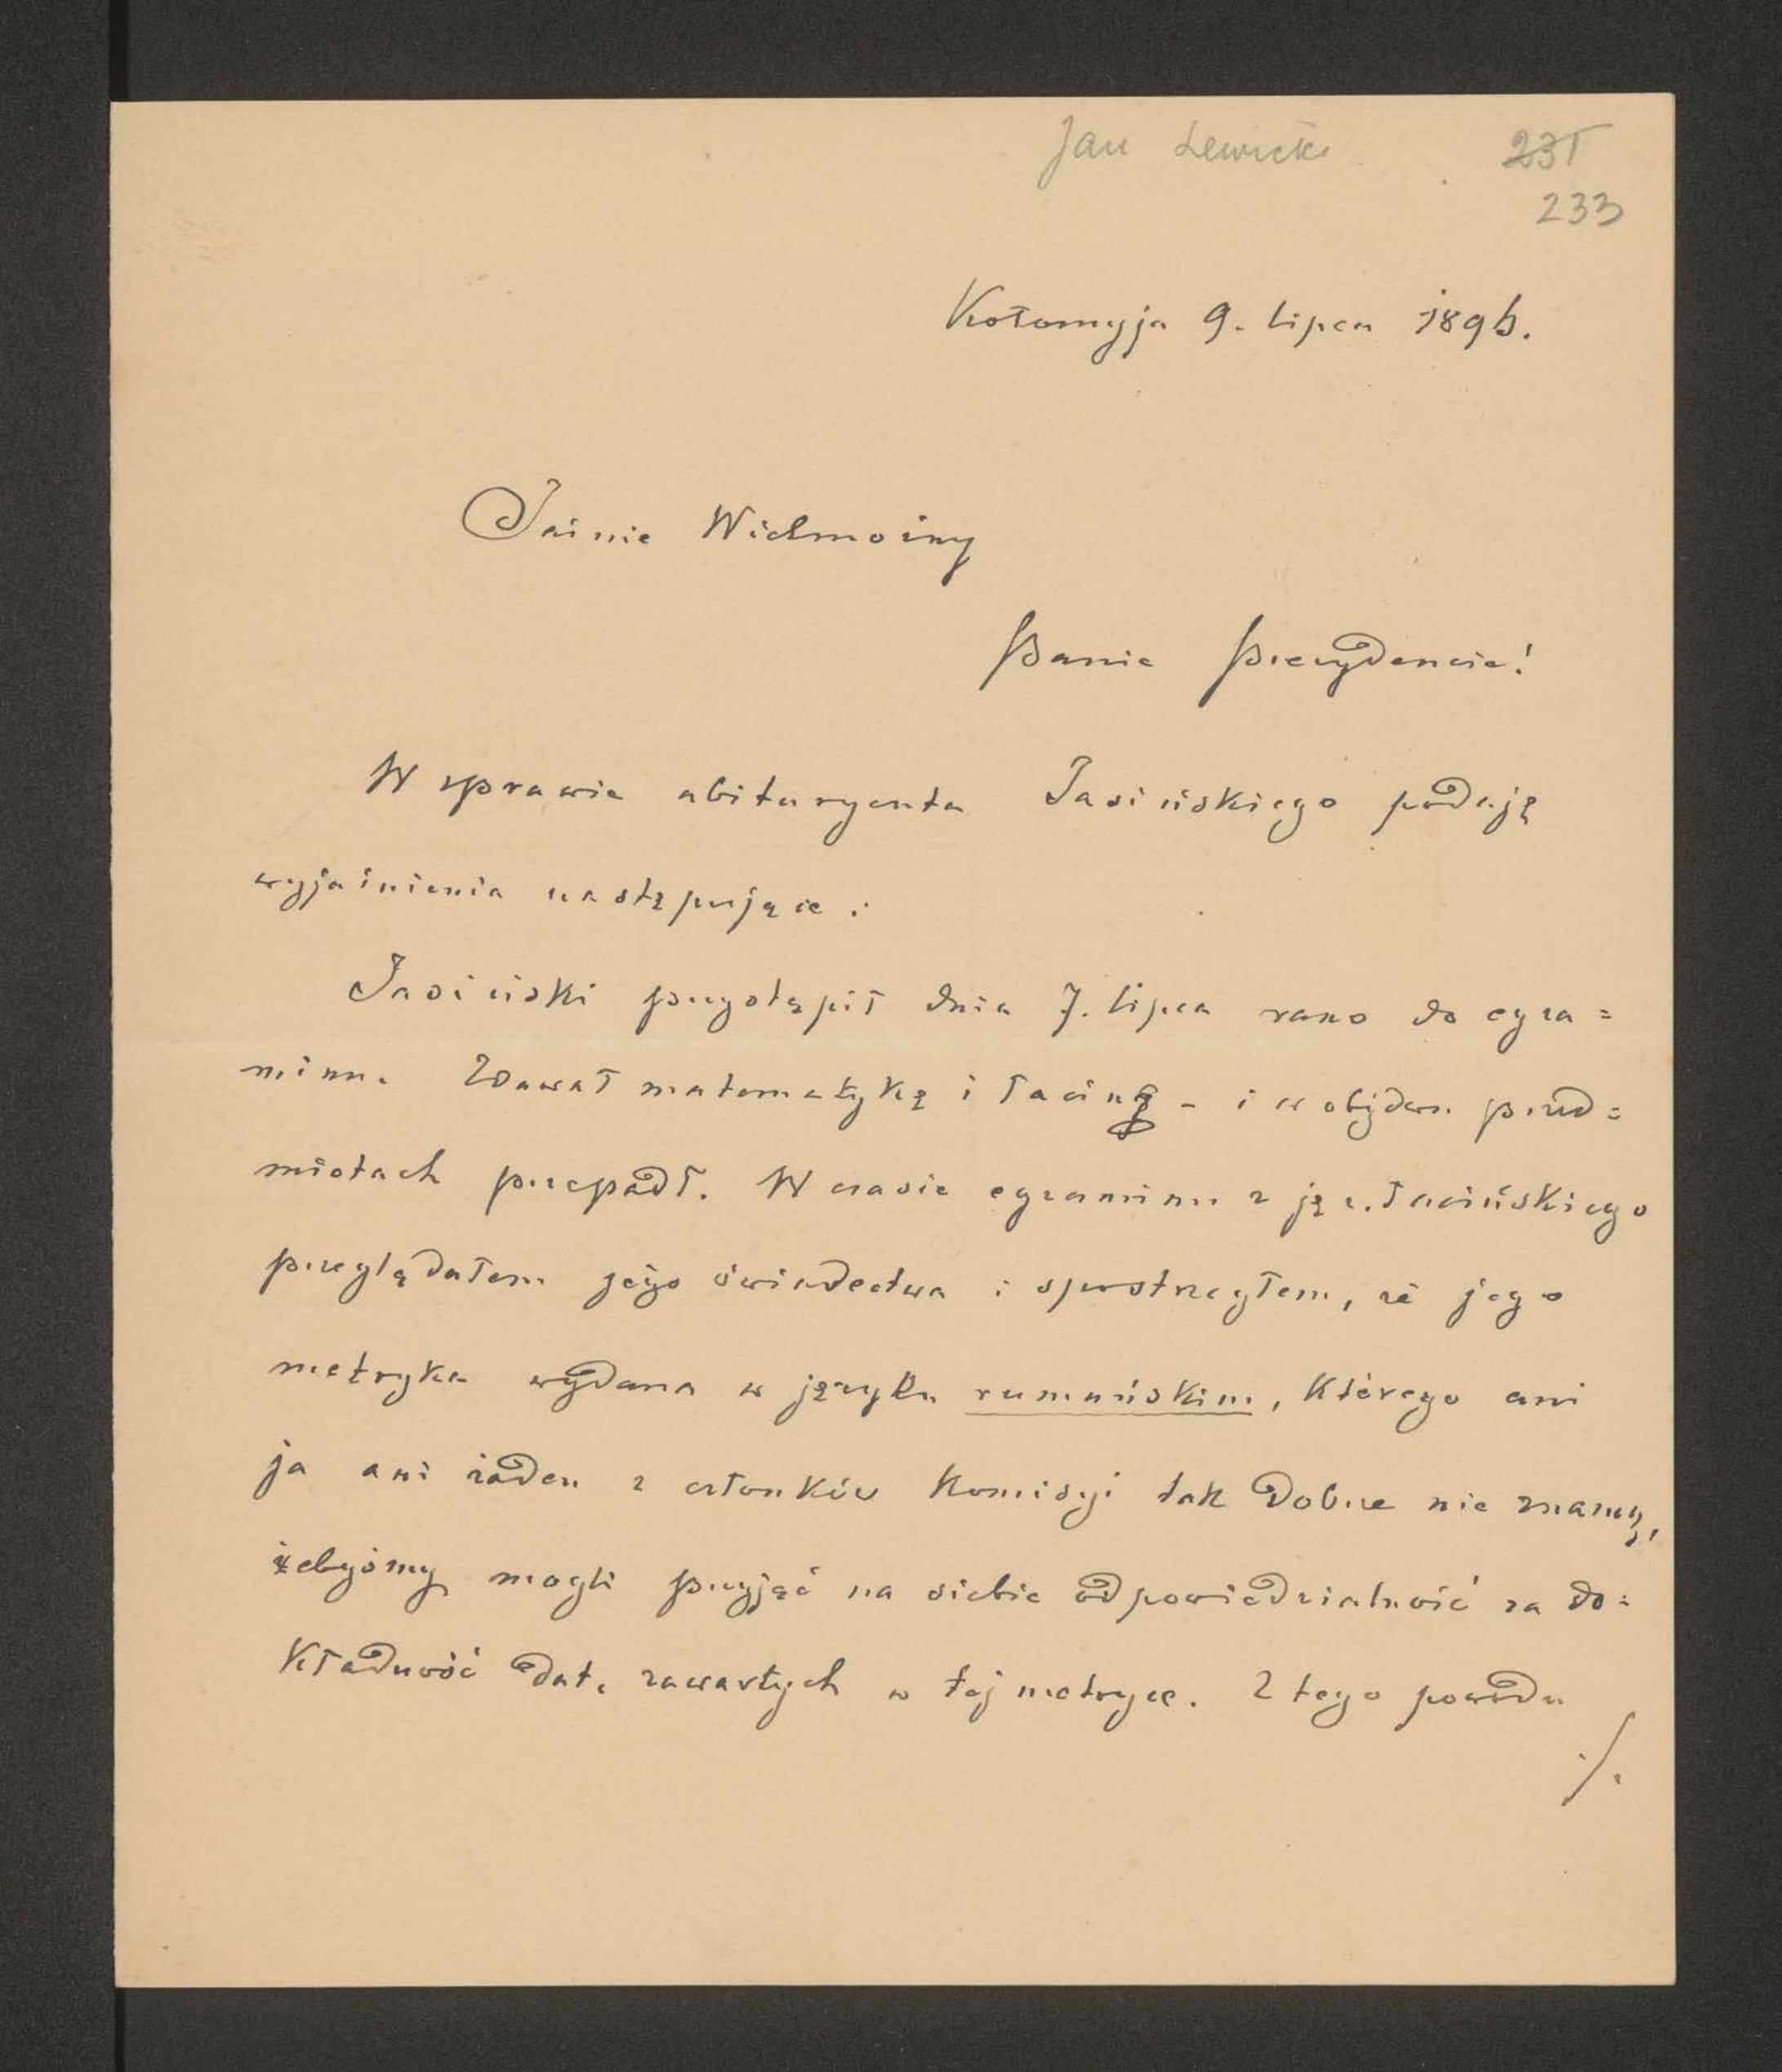 Jan Lewicki
231
233
Kołomyja 9. lipca 1896.
Jaśnie Wielmożny
Panie Prezydencie!
W sprawie abituryenta Jasińskiego podaję
wyjaśnienia następujące:
Jasiński przystąpił dnia 7. lipca rano do egza=
minu. Zdawał matematykę i łacinę - i w obydwu przed=
miotach przepadł. W czasie egzaminu z jęz. łacińskiego
przeglądałem jego świadectwa i spostrzegłem, że jego
metryka wydana w języku rumuńskim, którego ani
ja ani żaden z członków Komisyi tak dobrze nie znamy,
żebyśmy mogli przyjąć na siebie odpowiedzialność za do=
kładność dat, zawartych w tej metryce. Z tego powodu
./.